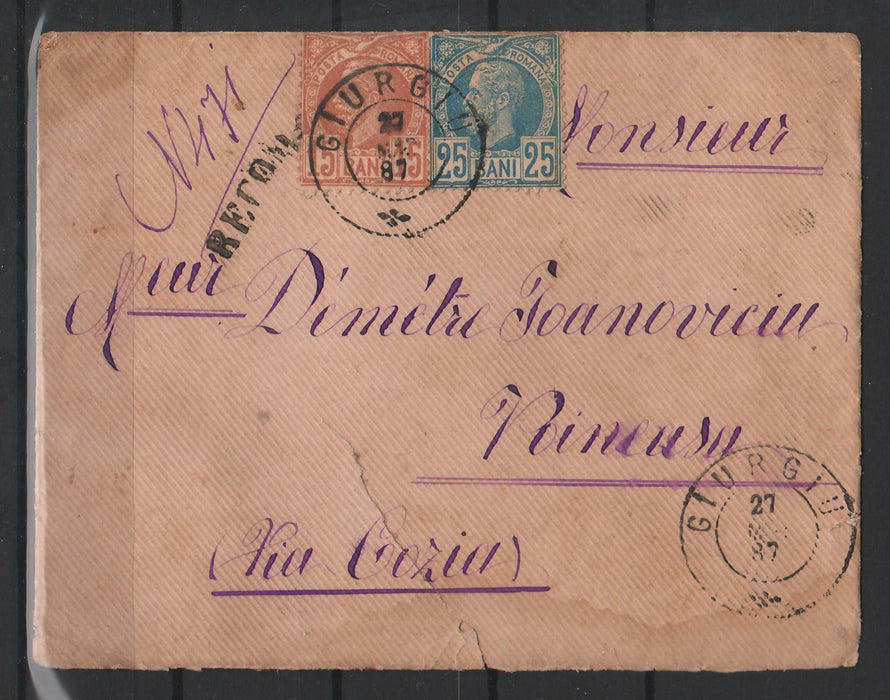 POSTA ROMANA POSTA ROMANA
15 BANI 15 25 BANI 25
GIURGIU
27
87
N 471
RECOM
Monsieur
Meur Démétre Joanoviciu
(Via Cozia)
GIURGIU
27
87